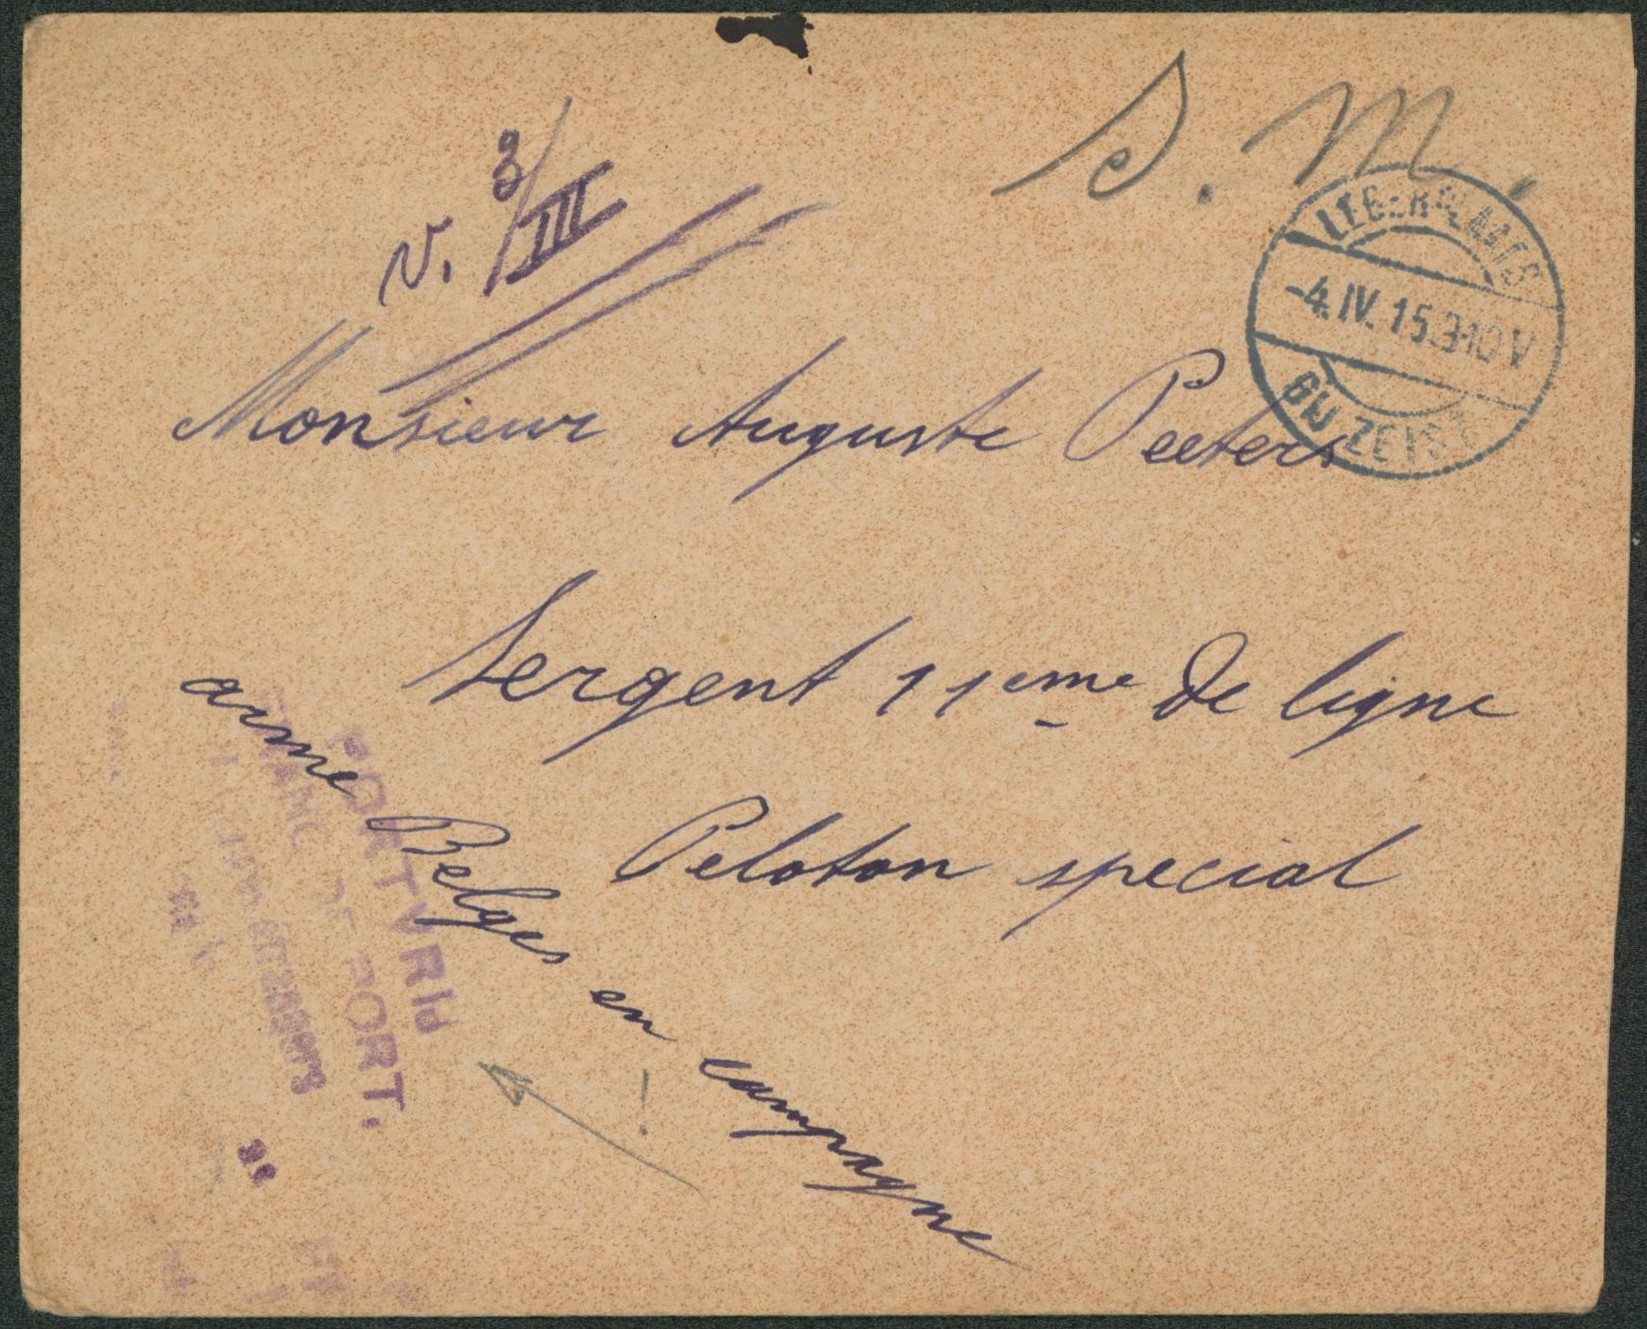 S. M.
v. 3/III
LEGERPLAATS
-4.IV.15.9-10V
BIJ ZEIST
Monsieur Auguste Peeters
Sergent 11eme de ligne
Peloton special
arme Belges en campagne
PORT VRIJ
FRANC DE PORT.
!